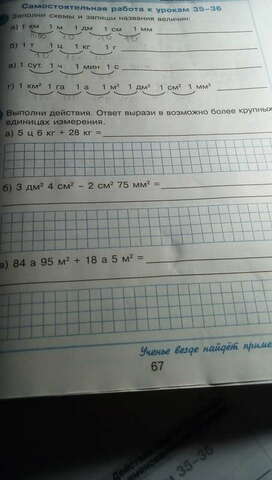 Самостоятельная работа к урокам 35–36
Заполни схемы и запиши названия величин:
а) 1 км 1 м 1 дм 1 см 1 мм
б) 1 т 1 ц 1 кг 1 г
в) 1 сут. 1 ч 1 мин 1 с
г) 1 км² 1 га 1 а 1 м² 1 дм² 1 см² 1 мм²
Выполни действия. Ответ вырази в возможно более крупных
единицах измерения.
а) 5 ц 6 кг + 28 кг =
б) 3 дм² 4 см² – 2 см² 75 мм² =
в) 84 а 95 м² + 18 а 5 м² =
Ученье везде найдёт приме
67
35-36